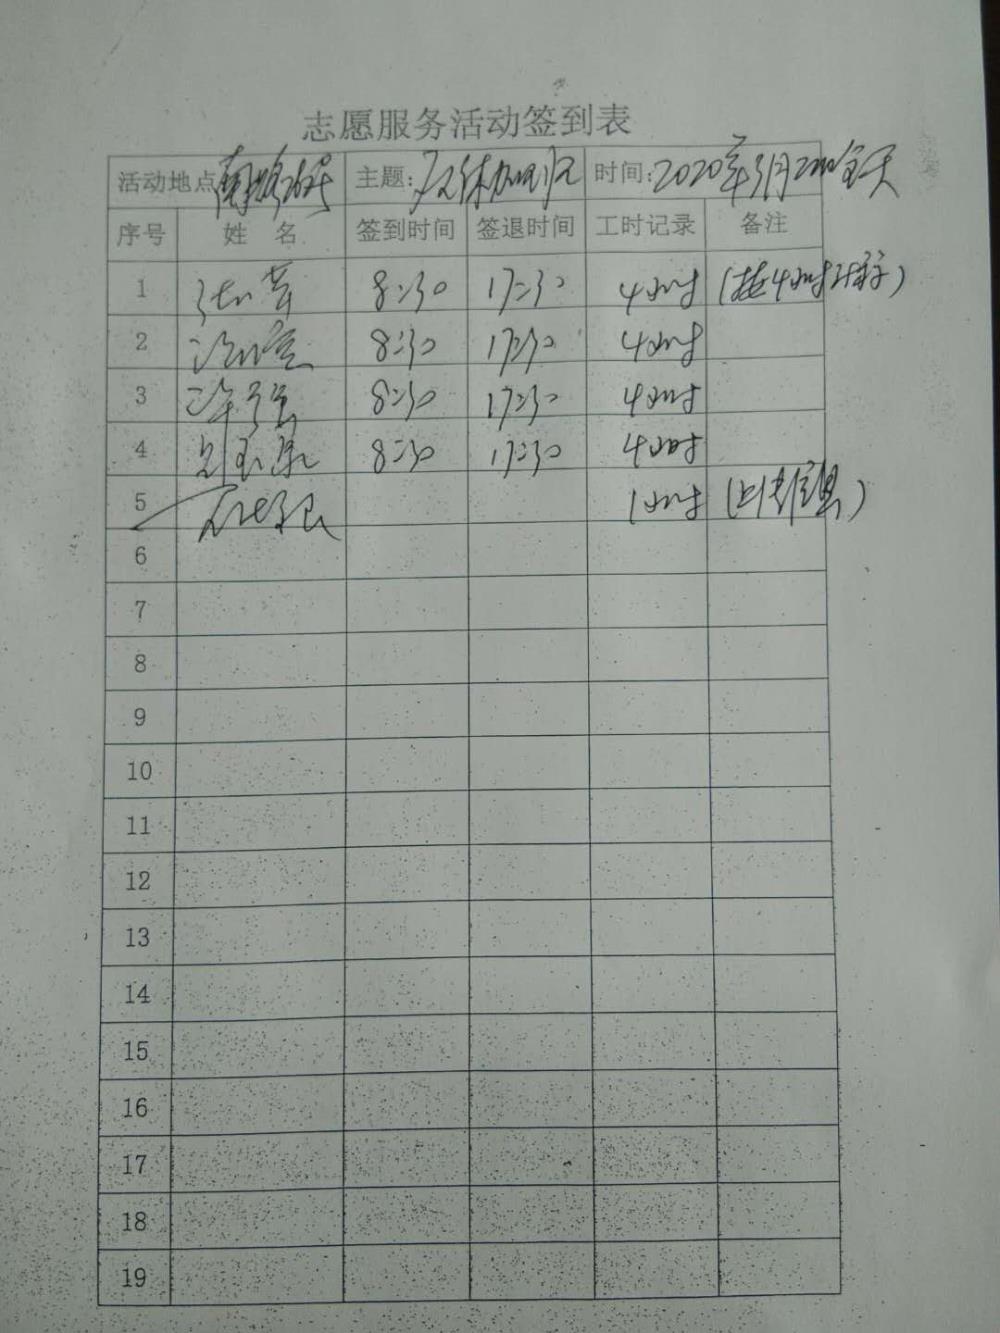 志愿服务活动签到表
活动地点 主题: 时间: 2020年3月22日全天
序号 姓名 签到时间 签退时间 工时记录 备注
1 8:30 17:30 4小时 (按4小时计算)
2 8:30 17:30 4小时
3 许强 8:30 17:30 4小时
4 8:30 17:30 4小时
5 1小时 (上传信息)
6
7
8
9
10
11
12
13
14
15
16
17
18
19